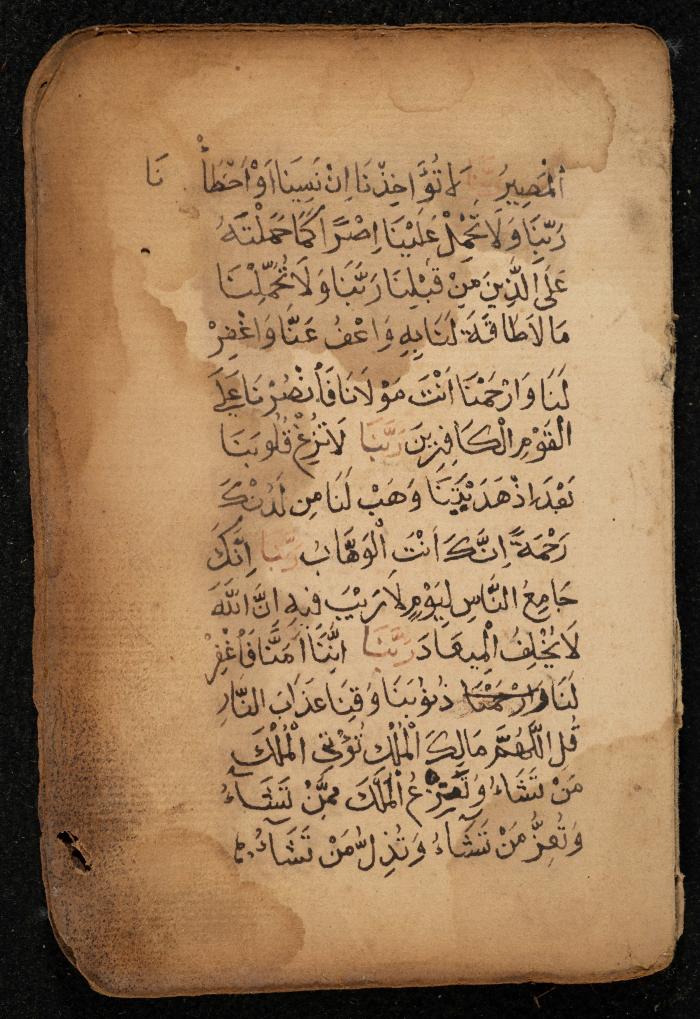 الْمَصِيرُ رَبَّنَا لَا تُؤَاخِذْنَا اِنْ نَسِينَا اَوْ اَخْطَأْنَا
رَبَّنَا وَلَا تَحْمِلْ عَلَيْنَا اِصْرًا كَمَا حَمَلْتَهُ
عَلَى الَّذِينَ مِنْ قَبْلِنَا رَبَّنَا وَلَا تُحَمِّلْنَا
مَا لَا طَاقَةَ لَنَا بِهِ وَاعْفُ عَنَّا وَاغْفِرْ
لَنَا وَارْحَمْنَا اَنْتَ مَوْلَانَا فَانْصُرْنَا عَلَى
الْقَوْمِ الْكَافِرِينَ رَبَّنَا لَا تُزِغْ قُلُوبَنَا
بَعْدَ اِذْ هَدَيْتَنَا وَهَبْ لَنَا مِن لَدُنْكَ
رَحْمَةً اِنَّكَ اَنْتَ الْوَهَّابُ رَبَّنَا اِنَّكَ
جَامِعُ النَّاسِ لِيَوْمٍ لَا رَيْبَ فِيهِ اِنَّ اللَّهَ
لَا يُخْلِفُ الْمِيعَادَ رَبَّنَا اِنَّنَا اَمَنَّا فَاغْفِرْ
لَنَا وَارْحَمْنَا ذُنُوبَنَا وَقِنَا عَذَابَ النَّارِ
قُلِ اللَّهُمَّ مَالِكَ الْمُلْكِ تُؤْتِي الْمُلْكَ
مَنْ تَشَاءُ وَتَنْزِعُ الْمُلْكَ مِمَّنْ تَشَاءُ
وَتُعِزُّ مَنْ تَشَاءُ وَتُذِلُّ مَنْ تَشَاءُ